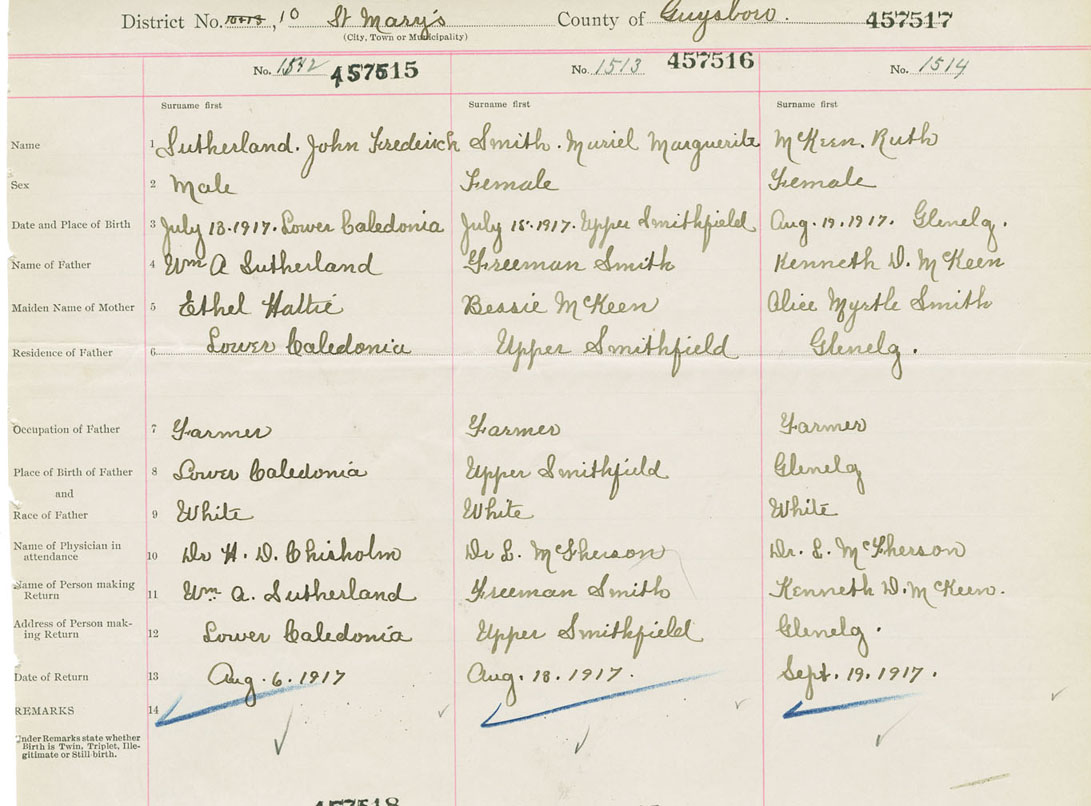 District No. , 10 St Mary's County of Guysboro. 457517
(City, Town or Municipality)
No. 457515 No. 1513 457516 No. 1514
Surname first Surname first Surname first
Name 1 Sutherland. John Frederick Smith. Muriel Marguerite McKeen. Ruth
Sex 2 Male Female Female
Date and Place of Birth 3 July 13.1917. Lower Caledonia July 15.1917. Upper Smithfield Aug. 19.1917. Glenelg.
Name of Father 4 Wm A Sutherland Freeman Smith Kenneth D. McKeen
Maiden Name of Mother 5 Ethel Hattie Bessie McKeen Alice Myrtle Smith
Residence of Father 6 Lower Caledonia Upper Smithfield Glenelg.
Occupation of Father 7 Farmer Farmer Farmer
Place of Birth of Father 8 Lower Caledonia Upper Smithfield Glenelg
and
Race of Father 9 White White White
Name of Physician in
attendance 10 Dr H. D. Chisholm Dr L. McPherson Dr. L. McPherson
Name of Person making
Return 11 Wm. A. Sutherland Freeman Smith Kenneth D. McKeen.
Address of Person mak-
ing Return 12 Lower Caledonia Upper Smithfield Glenelg.
Date of Return 13 Aug. 6. 1917 Aug. 18. 1917. Sept. 19. 1917.
REMARKS 14
Under Remarks state whether
Birth is Twin, Triplet, Ille-
gitimate or Still-birth.
457518